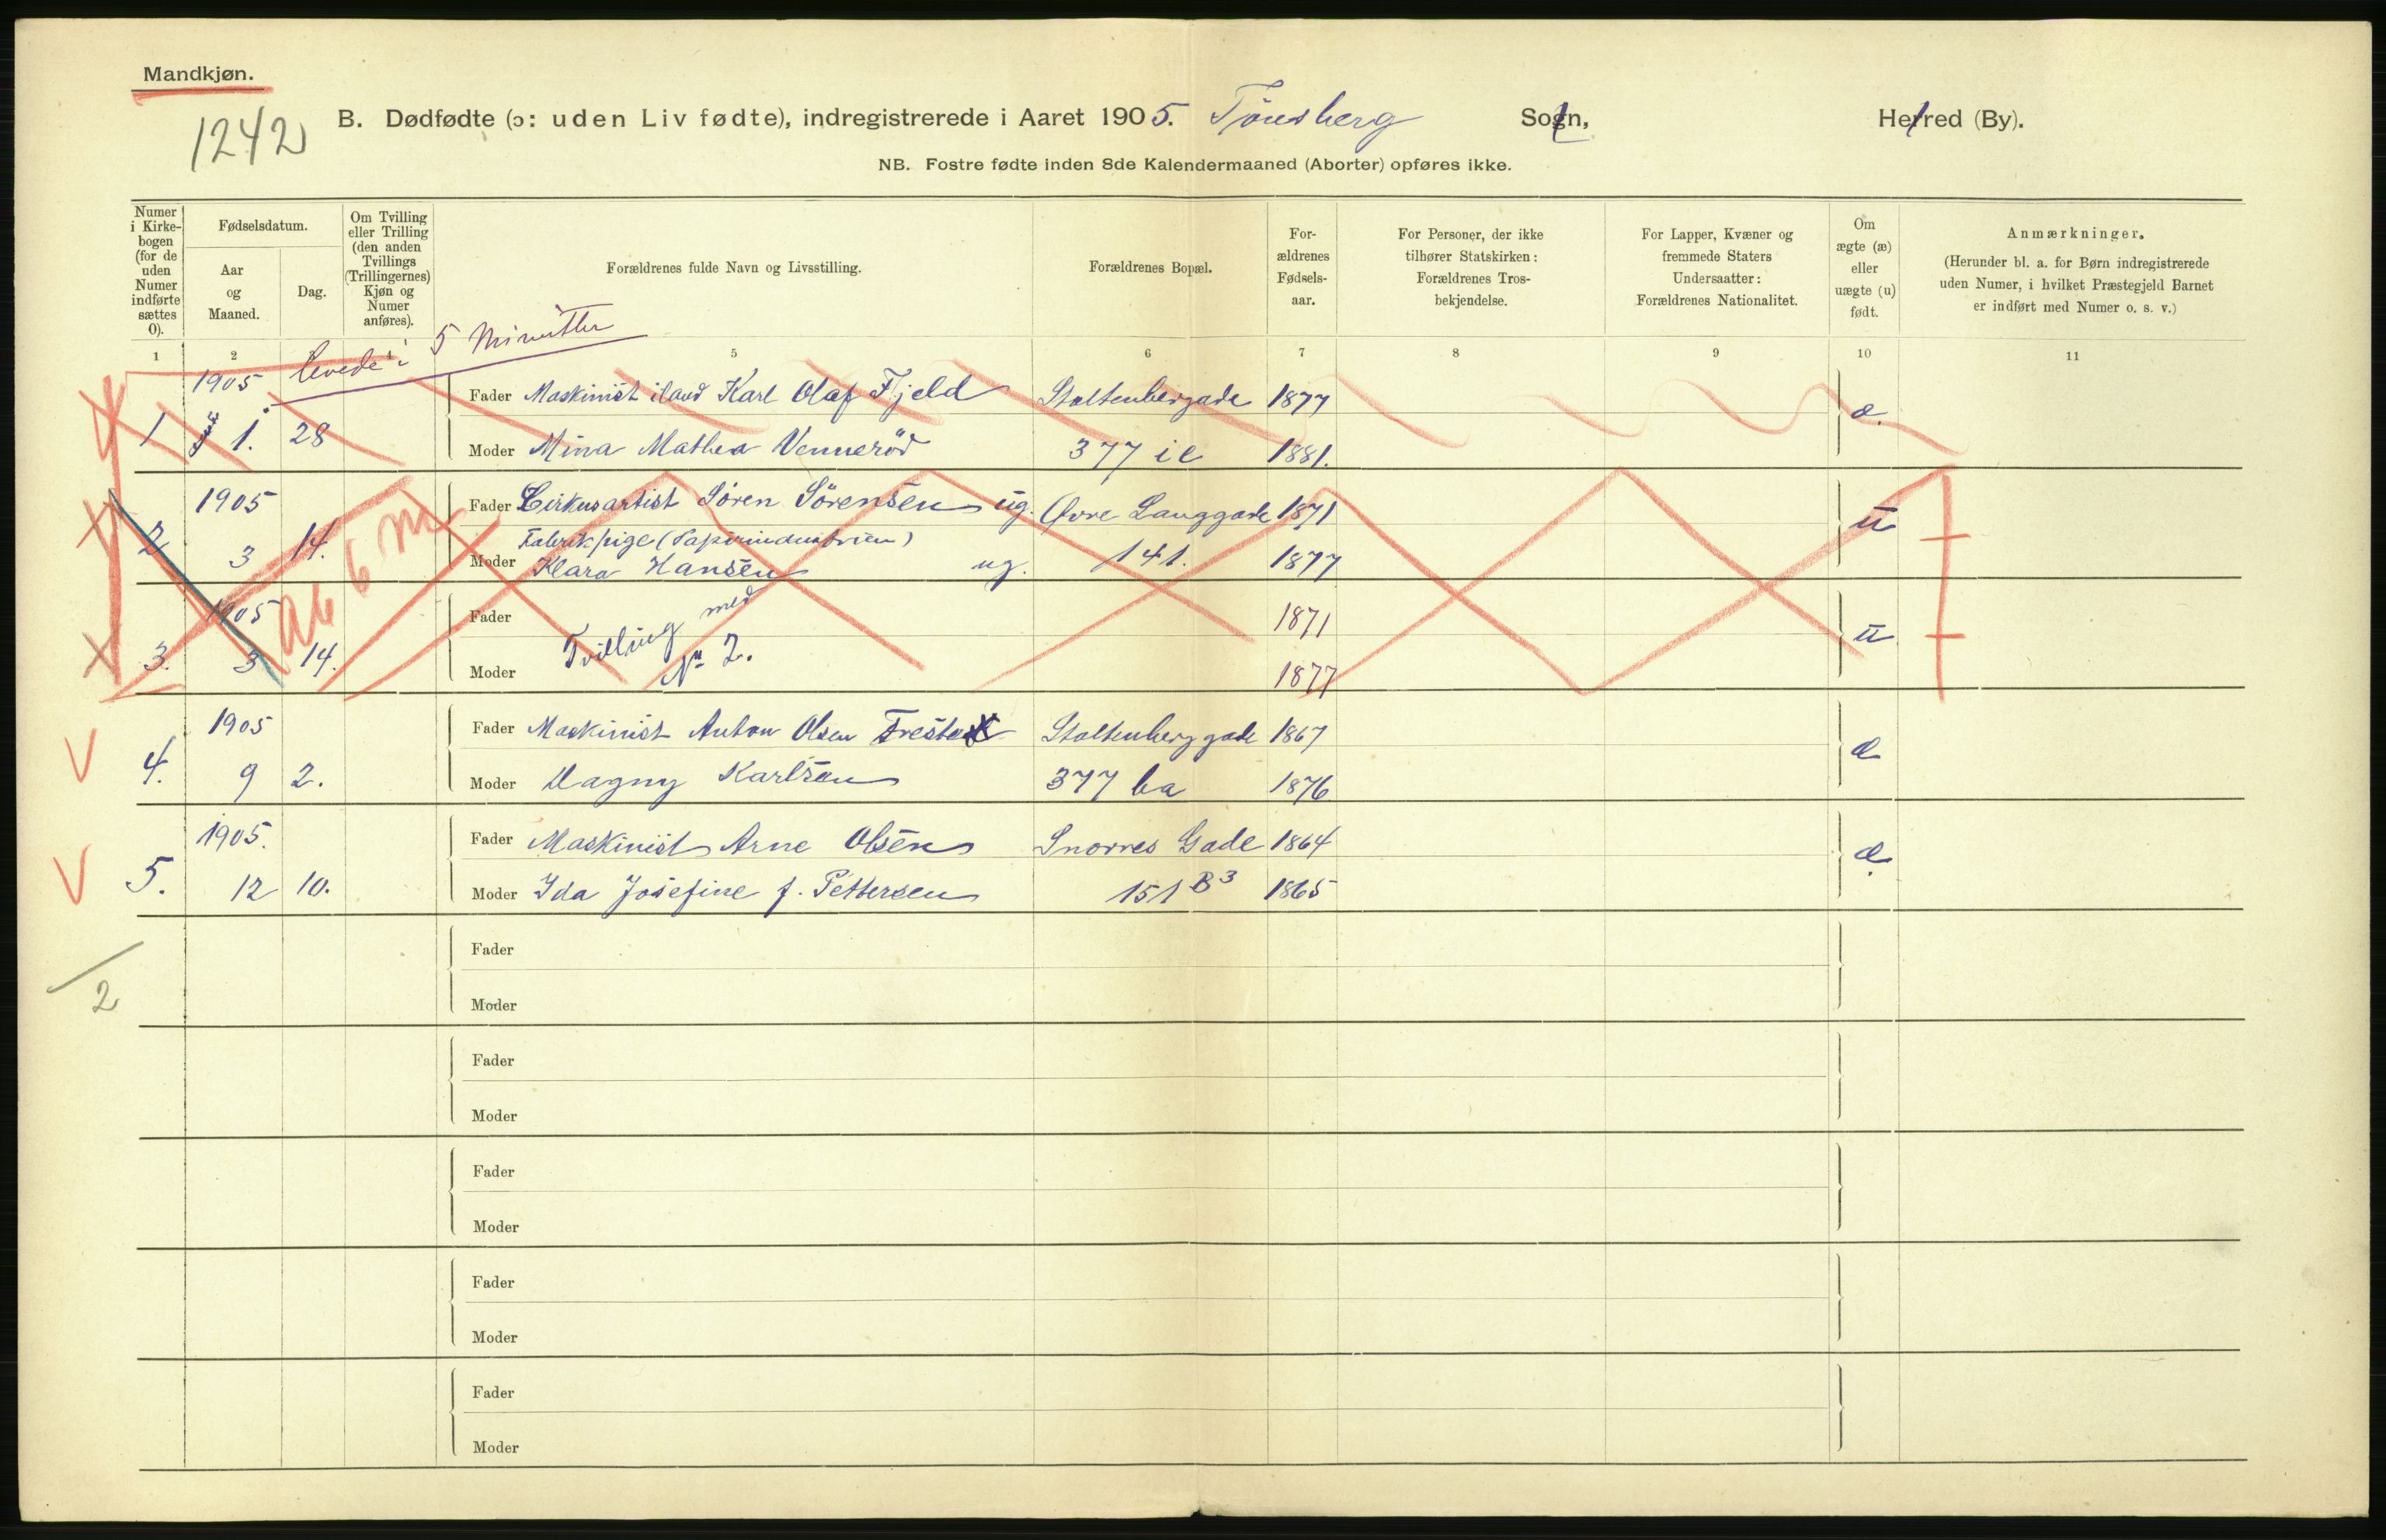 Mandkjøn.
1242
B. Dødfødte (ɔ: uden Liv fødte), indregistrerede i Aaret 1905. Tönsberg Sogn, Herred (By).
NB. Fostre fødte inden 8de Kalendermaaned (Aborter) opføres ikke.
Numer i Kirkebogen (for de uden Numer indførte sættes 0).
Fødselsdatum.
Aar og Maaned.
Dag.
Om Tvilling eller Trilling (den anden Tvillings (Trillingernes) Kjøn og Numer anføres).
Forældrenes fulde Navn og Livsstilling.
Forældrenes Bopæl.
Forældrenes Fødselsaar.
For Personer, der ikke tilhører Statskirken: Forældrenes Trosbekjendelse.
For Lapper, Kvæner og fremmede Staters Undersaatter: Forældrenes Nationalitet.
Om ægte (æ) eller uægte (u) født.
Anmærkninger.
(Herunder bl. a. for Børn indregistrerede uden Numer, i hvilket Præstegjeld Barnet er indført med Numer o. s. v.)
1 2 5 6 7 8 9 10 11
levede i 5 Minutter
1905
Fader Maskinist iland Karl Olaf Fjeld Stoltenbergade 1877
1 1. 28 æ.
Moder Mina Mathea Venneröd 377 ic 1881.
1905
Fader Cirkusartist Sören Sörensen ug. Øvre Langgade 1871
2 3 14. u
Fabrikpige (Papirindustrien)
Moder Klara Hansen ug. 141. 1877
ab 6 m
1905
Fader 1871
3. 3 14. Tvilling med № 2. u
Moder 1877
1905
Fader Maskinist Anton Olsen Stoltenberggade 1867
4. 9 2. æ
Moder Dagny Karlsen 377 ba 1876
1905.
Fader Maskinist Arne Olsen Snorres Gade 1864
5. 12 10. æ.
Moder Ida Josefine f. Pettersen 151 B³ 1865
2
Fader
Moder
Fader
Moder
Fader
Moder
Fader
Moder
Fader
Moder